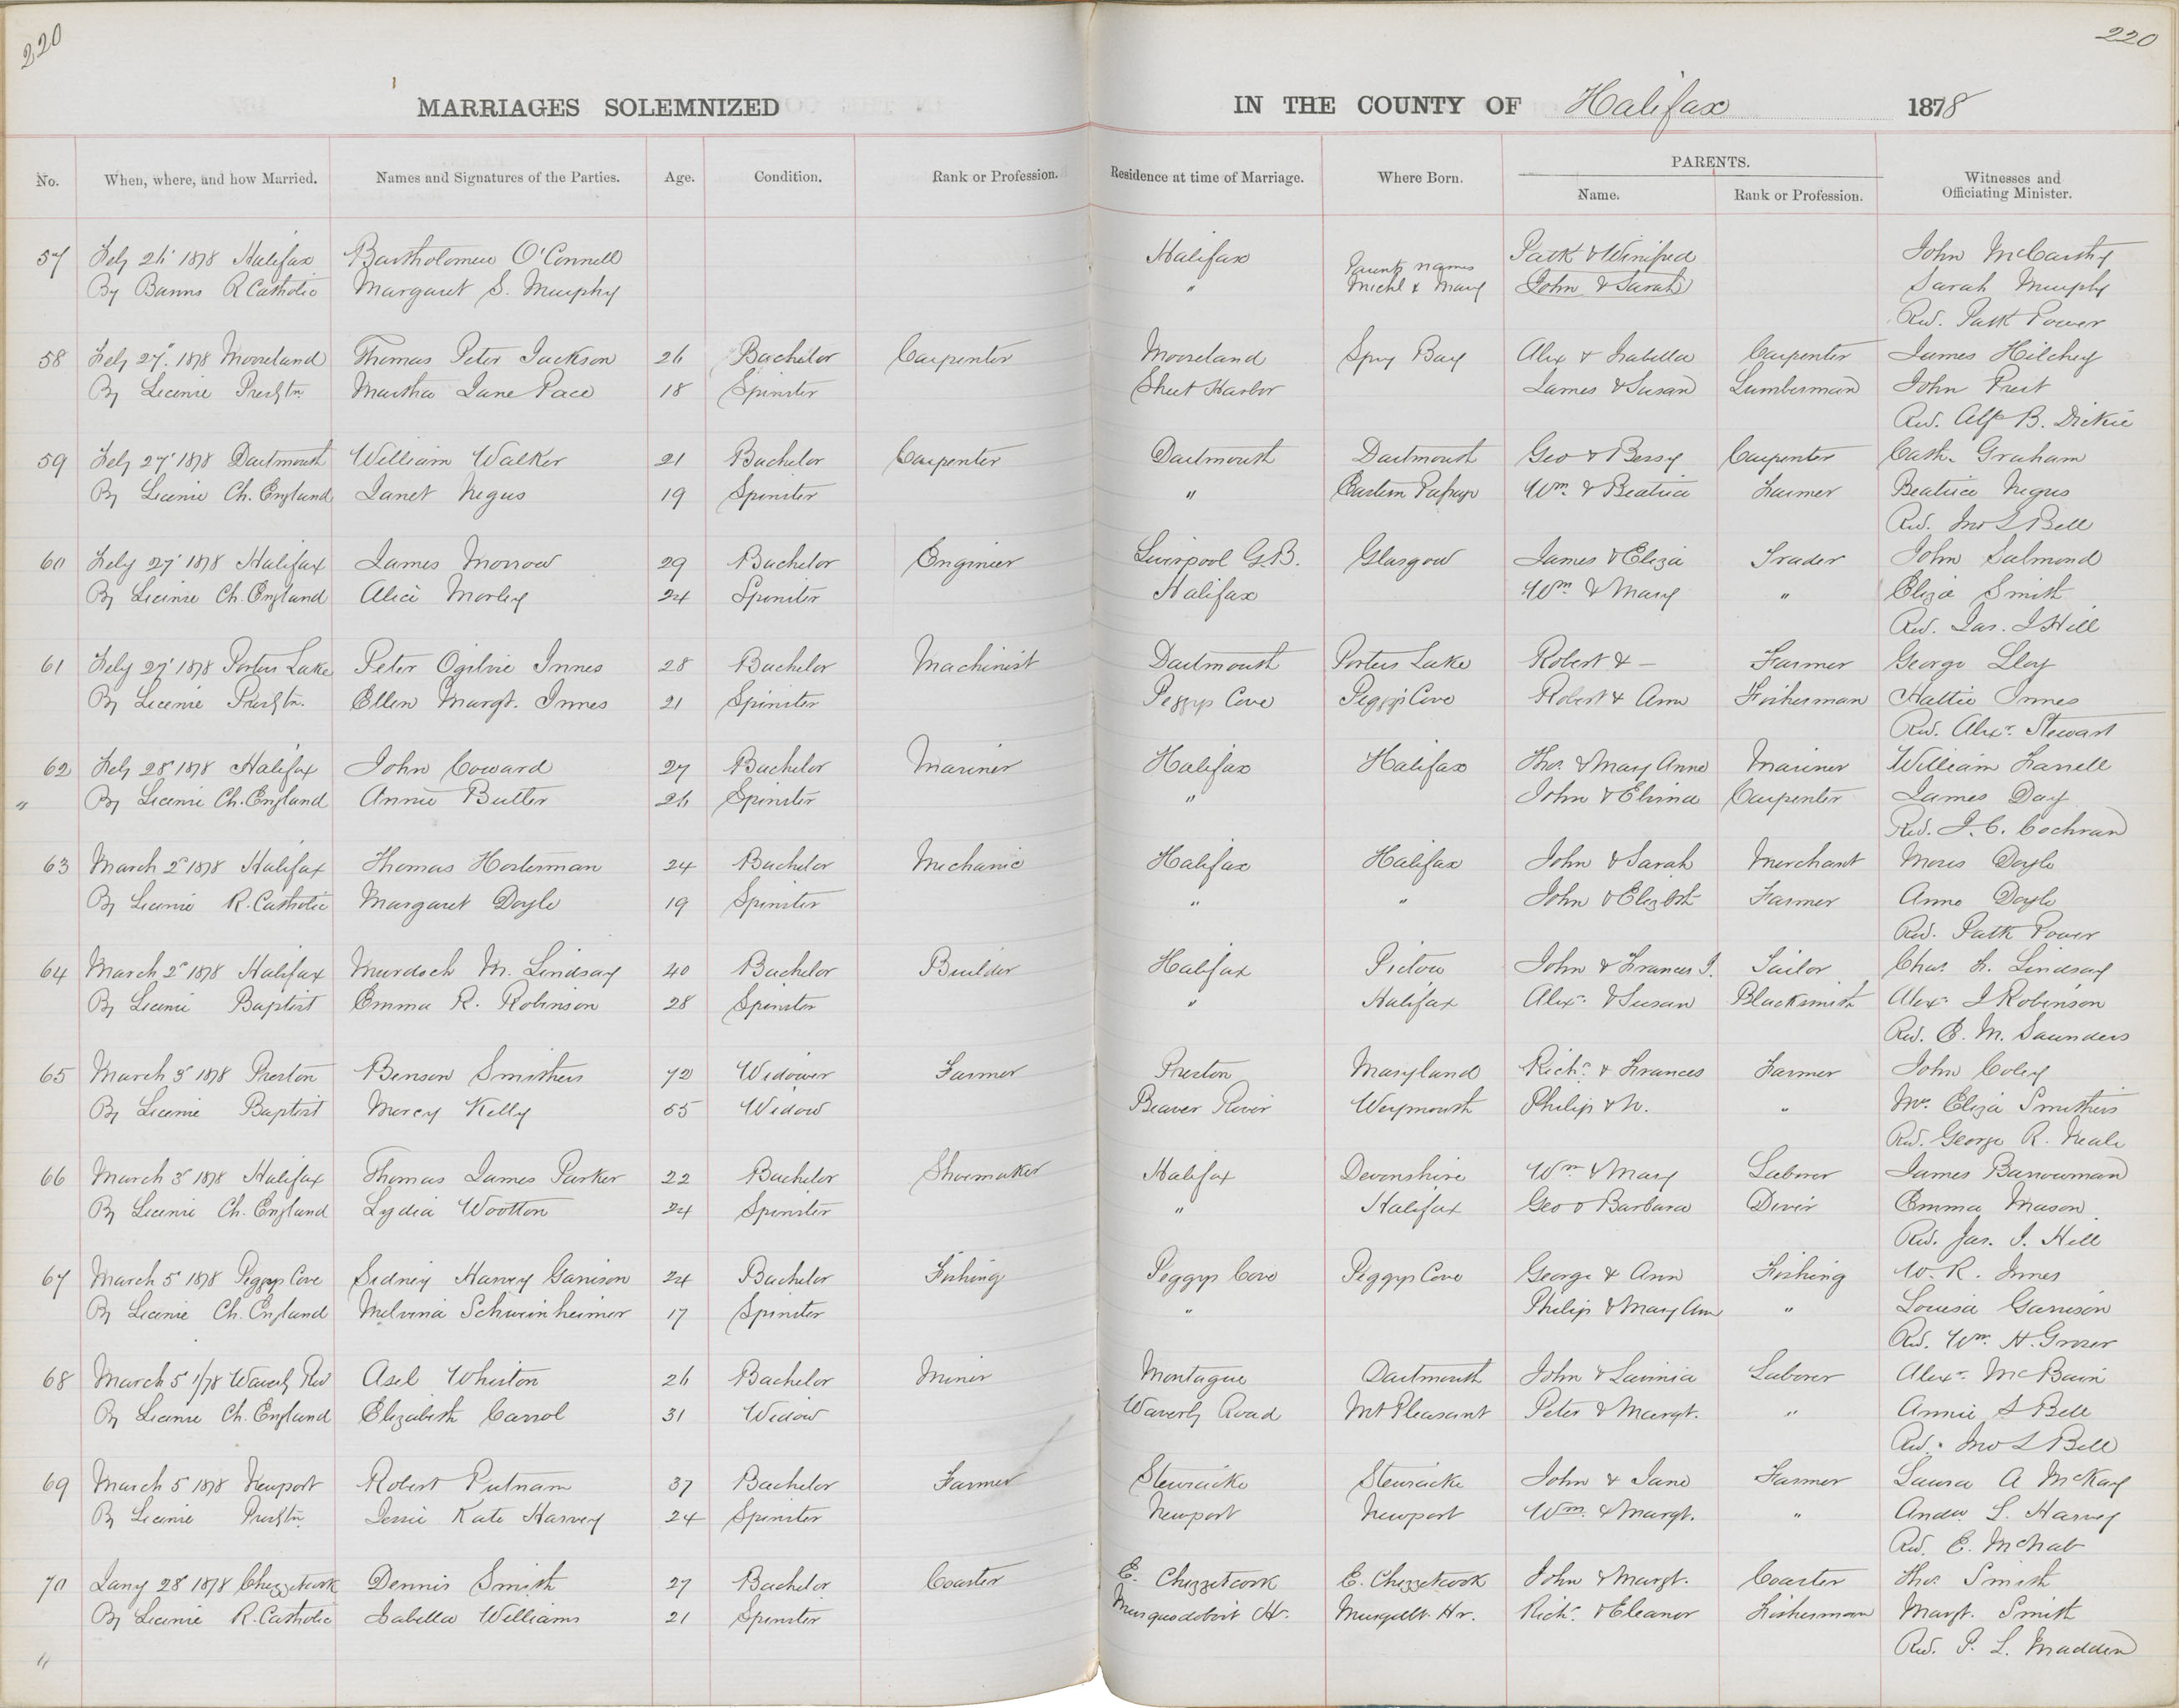 220
220
MARRIAGES SOLEMNIZED IN THE COUNTY OF Halifax 1878
No. When, where, and how Married. Names and Signatures of the Parties. Age. Condition. Rank or Profession. Residence at time of Marriage. Where Born. PARENTS. Name. Rank or Profession. Witnesses and Officiating Minister.
57 Feby 26 1878 Halifax Bartholomew O'Connell Halifax Patk & Winifred John McCarthy
By Banns R Catholic Margaret S. Murphy " Parents names Michl & Mary John & Sarah Sarah Murphy
Rev. Patk Power
58 Feby 27 1878 Mooseland Thomas Peter Jackson 26 Bachelor Carpenter Mooseland Spry Bay Alex & Isabella Carpenter James Hilchey
By License Presbtn Martha Jane Pace 18 Spinster Sheet Harbor James & Susan Lumberman John Prest
Rev. Alfd B. Dickie
59 Feby 27 1878 Dartmouth William Walker 21 Bachelor Carpenter Dartmouth Dartmouth Geo & Bessy Carpenter Cath. Graham
By License Ch. England Janet Negus 19 Spinster " Eastern Passage Wm. & Beatrice Farmer Beatrice Negus
Rev. Jno L Bell
60 Feby 27 1878 Halifax James Morrow 29 Bachelor Engineer Liverpool G.B. Glasgow James & Eliza Trader John Salmond
By License Ch. England Alice Morley 24 Spinster Halifax Wm & Mary " Eliza Smith
Rev. Jas. J Hill
61 Feby 27 1878 Porters Lake Peter Ogilvie Innes 28 Bachelor Machinist Dartmouth Porters Lake Robert & – Farmer George Lloy
By License Presbtn. Ellen Margt. Innes 21 Spinster Peggys Cove Peggys Cove Robert & Ann Fisherman Hattie Innes
Rev. Alexr. Stewart
62 Feby 28 1878 Halifax John Coward 27 Bachelor Mariner Halifax Halifax Thos. & Mary Anne Mariner William Farrell
" By License Ch. England Annie Butler 26 Spinster " John & Carpenter James Day
Rev. J. C. Cochran
63 March 2 1878 Halifax Thomas Hosterman 24 Bachelor Mechanic Halifax Halifax John & Sarah Merchant Moses Doyle
By License R. Catholic Margaret Doyle 19 Spinster " " John & Elizbth Farmer Anne Doyle
Rev. Patk Power
64 March 2 1878 Halifax Murdoch M. Lindsay 40 Bachelor Builder Halifax Pictou John & Frances J. Tailor Chas. F. Lindsay
By License Baptist Emma R. Robinson 28 Spinster " Halifax Alexr. & Susan Blacksmith Alexr. J Robinson
Rev. E. M. Saunders
65 March 3 1878 Preston Benson Smithers 72 Widower Farmer Preston Maryland Richd. & Frances Farmer John Coley
By License Baptist Mercy Kelly 55 Widow Beaver River Weymouth Philip & N. " Mrs. Eliza Smithers
Rev. George R. Neale
66 March 3 1878 Halifax Thomas James Parker 22 Bachelor Shoemaker Halifax Devonshire Wm & Mary Laborer James Barrowman
By License Ch. England Lydia Wootton 24 Spinster " Halifax Geo & Barbara Diver Emma Mason
Rev. Jas. J. Hill
67 March 5 1878 Peggys Cove Sidney Harvey Garrison 24 Bachelor Fishing Peggys Cove Peggys Cove George & Ann Fishing W. R. Innes
By License Ch. England Melvina Schwinheimer 17 Spinster " Philip & Mary Ann " Louisa Garrison
Rev. Wm. H. Groser
68 March 5 1/78 Waverly Rd Asel Whiston 26 Bachelor Miner Montague Dartmouth John & Lavinia Laborer Alexr. McBain
By License Ch. England Elizabeth Carrol 31 Widow Waverly Road Mt Pleasant Peter & Margt. " Annie S Bell
Rev. Jno L Bell
69 March 5 1878 Newport Robert Putnam 37 Bachelor Farmer Stewiacke Stewiacke John & Jane Farmer Laura A McKay
By License Presbtn. Jessie Kate Harvey 24 Spinster Newport Newport Wm. & Margt. " Andw L. Harvey
Rev. E. McNab
70 Jany 28 1878 Chezzetcook Dennis Smith 27 Bachelor Coaster E. Chezzetcook E. Chezzetcook John & Margt. Coaster Thos. Smith
By License R. Catholic Isabella Williams 21 Spinster Musquodoboit Hr. Musqdbt. Hr. Richd. & Eleanor Fisherman Margt. Smith
" Rev. P. L. Madden